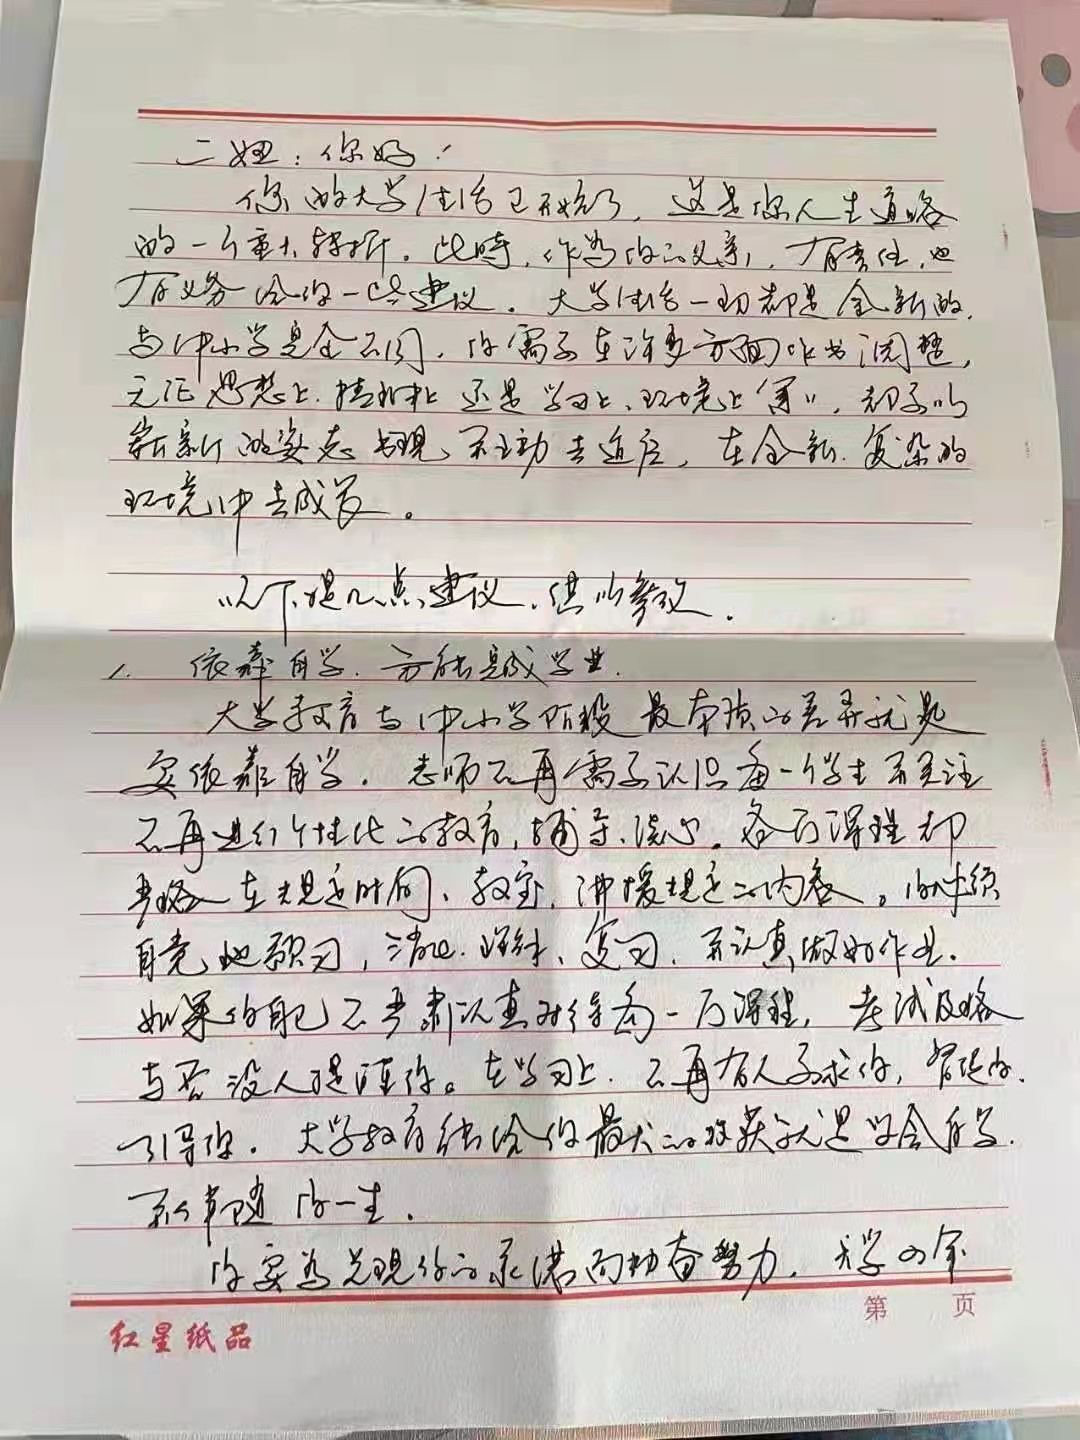 二妞：你好！
你的大学生活已开始了，这是你人生道路
的一个重大转折。此时，作为你的父亲，有责任，也
有义务给你一些建议。大学生活一切都是全新的，
与中小学完全不同，你需要在许多方面作出调整，
无论思想上、精神上还是学习上、环境上等，都要以
崭新的姿态出现，并主动去适应，在全新、复杂的
环境中去成长。
以下提几点建议，供你参考。
1. 依靠自学，方能完成学业。
大学教育与中小学阶段最本质的差异就是
要依靠自学。老师不再需要认识每一个学生并关注
不再进行个性化的教育，辅导、谈心。各门课程都
严格在规定时间、教室，讲授规定的内容。你必须
自觉地预习，消化、理解、复习，并认真做好作业。
如果你自己不严肃认真对待每一门课程，考试及格
与否没人提醒你。在学习上，不再有人要求你，督促你，
引导你。大学教育能给你最大的收获就是学会自学，
并伴随你一生。
你要为兑现你的承诺而勤奋努力，大学四年
第 页
红星纸品